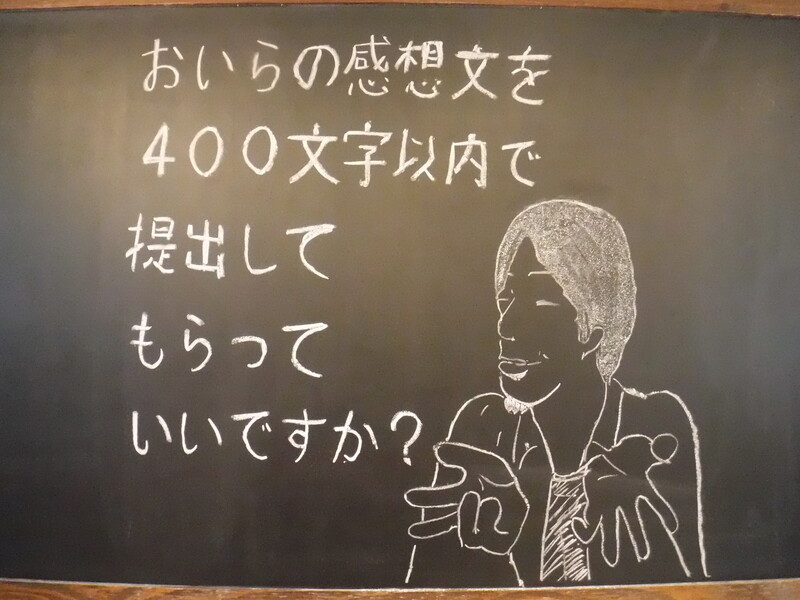 おいらの感想文を
400文字以内で
提出して
もらって
いいですか?